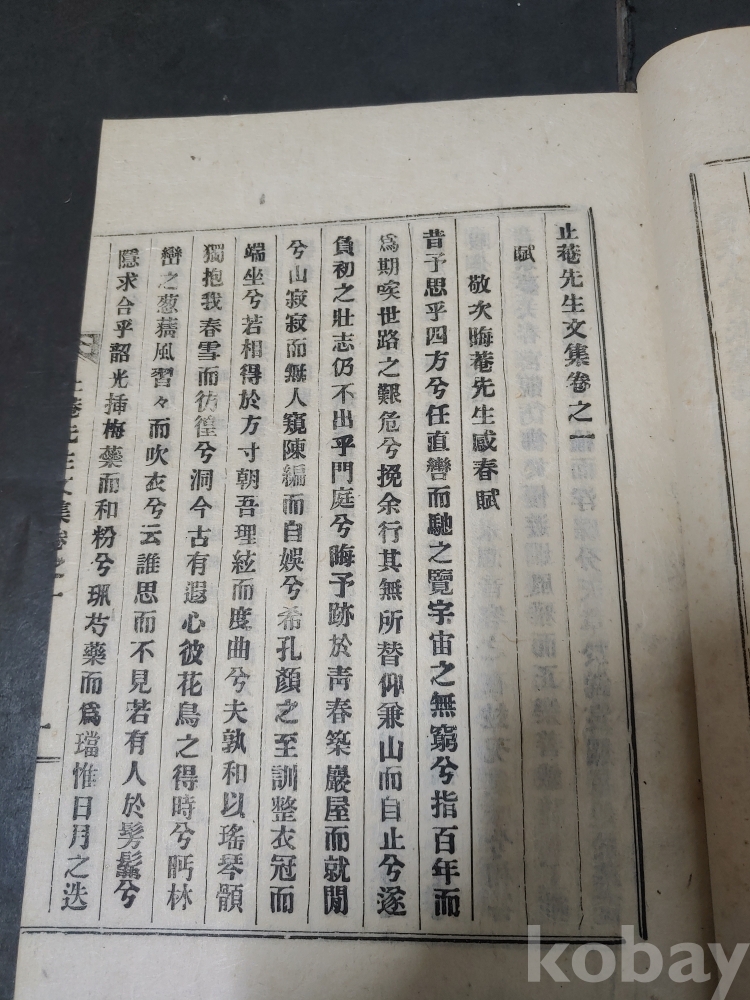 止菴先生文集卷之一
賦
敬次晦菴先生感春賦
昔予思乎四方兮任直轡而馳之覽宇宙之無窮兮指百年而
爲期唉世路之艱危兮挽余行其無所替仰兼山而自止兮遂
負初之壯志仍不出乎門庭兮晦予跡於靑春築巖屋而就閒
兮山寂寂而無人窺陳編而自娛兮希孔顏之至訓整衣冠而
端坐兮若相得於方寸朝吾理絃而度曲兮夫孰和以瑤琴顥
獨抱我春雪而彷徨兮洞今古有遐心彼花鳥之得時兮眄林
巒之葱蒨風習々而吹衣兮云誰思而不見若有人於髣髴兮
隱求合乎韶光揷梅藥而和粉兮珮芍藥而爲璫惟日月之迭
止菴先生文集卷之一
一
kobay